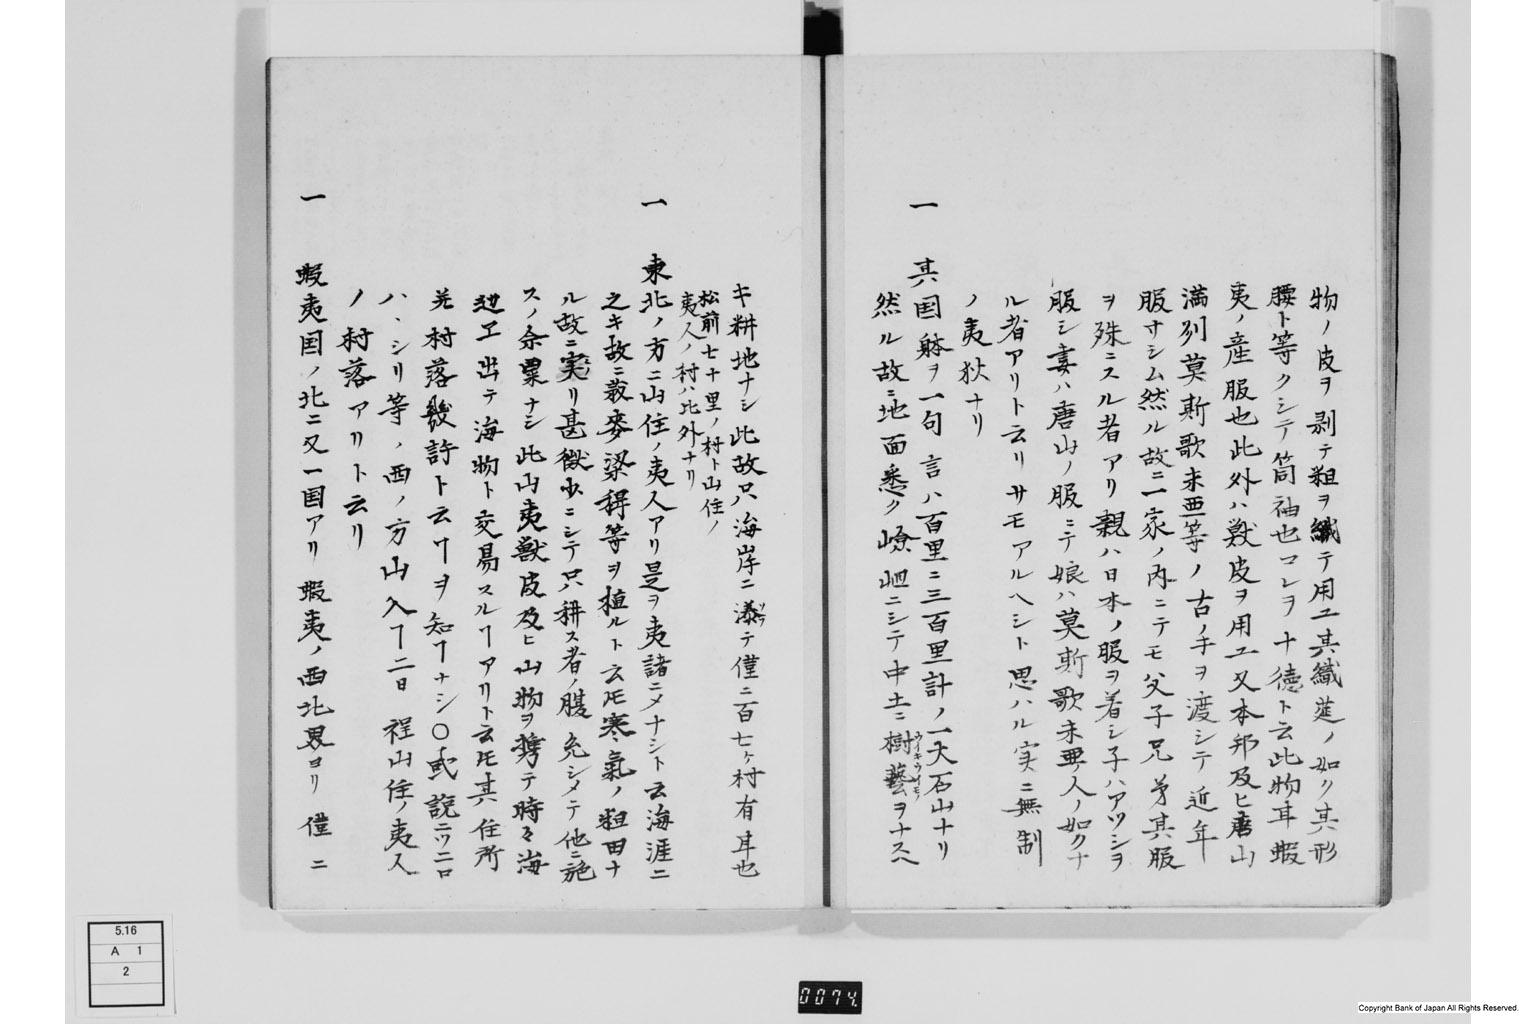 物ノ皮ヲ剥テ粗ヲ織テ用ユ其織莚ノ如ク其形
腰ト等クシテ筒袖也コレヲ十徳ト云此物耳蝦
夷ノ産服也此外ハ獣皮ヲ用ユ又本邦及ヒ唐山
満列莫斯歌未亜等ノ古ノ手ヲ渡シテ近年
服サシム然ル故ニ一家ノ内ニテモ父子兄弟其服
ヲ殊ニスル者アリ親ハ日本ノ服ヲ着シ子ハアツシヲ
服シ妻ハ唐山ノ服ニテ娘ハ莫斯歌未亜ノ人ノ如クナ
ル者アリト云リサモアルヘシト思ハル実ニ無制
ノ夷狄ナリ
一 其国躰ヲ一句言ハ百里ニ三百里計ノ一大石山ナリ
然ル故ニ地面悉ク嶮岨ニシテ中土ニ樹藝ヲナスヘ
ウイキウイモノ
キ耕地ナシ此故只海岸ニ添テ僅ニ百七ヶ村有耳也
ソフ
松前七十里ノ村ト山住ノ
夷人ノ村ハ比外ナリ
一 東北ノ方ニ山住ノ夷人アリ是ヲ夷諸ニメナシト云海涯ニ
之キ故ニ菽麥梁稗等ヲ植ルト云𪜈寒氣ノ粗田ナ
ル故ニ実リ甚微少ニシテ只耕ス者ノ腹充シメテ他ニ施
スノ余粟ナシ此山夷獣皮及ヒ山物ヲ携テ時々海
辺エ出テ海物ト交易スルヿアリト云𪜈其住所
并村落幾許ト云ヿヲ知ヿナシ〇或説ニツニロ
ハ、シリ等ノ西ノ方山入ヿ二日程山住ノ夷人
ノ村落アリト云リ
一 蝦夷国ノ北ニ又一国アリ蝦夷ノ西北界ヨリ僅ニ
5.16
A 1
2
0074.
Copyright Bank of Japan All Rights Reserved.